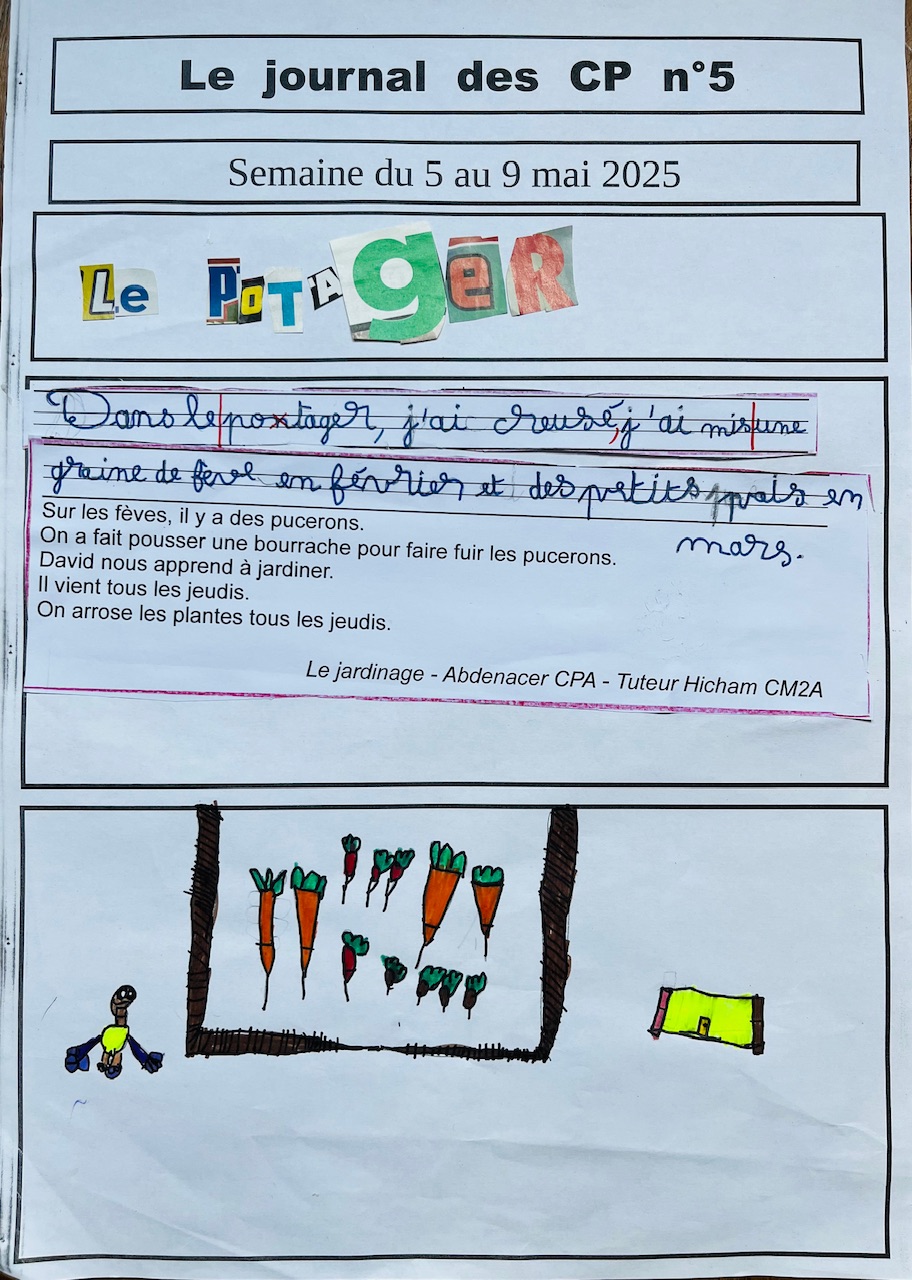 Le journal des CP n°5
Semaine du 5 au 9 mai 2025
Le PoTAgeR
Dans le potager, j'ai creusé, j'ai mis une
graine de fève en février et des petits pois en
mars.
Sur les fèves, il y a des pucerons.
On a fait pousser une bourrache pour faire fuir les pucerons.
David nous apprend à jardiner.
Il vient tous les jeudis.
On arrose les plantes tous les jeudis.
Le jardinage - Abdenacer CPA - Tuteur Hicham CM2A